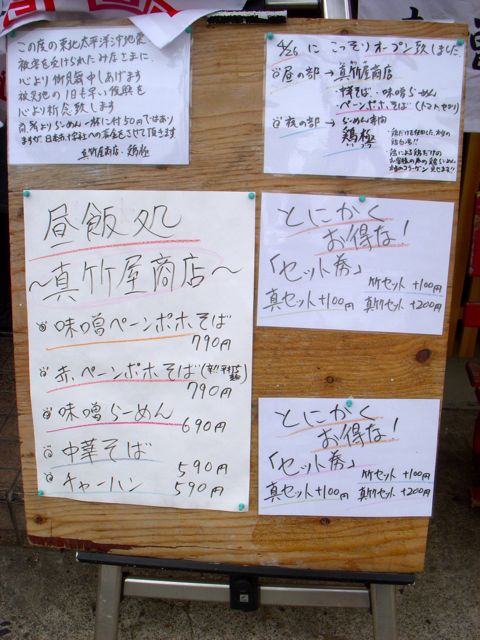 この度の東北太平洋沖地震
被害を受けられたみなさまに
心より御見舞申しあげます
被災地の1日も早い復興を
心より祈念致します
自店よりらーめん一杯に付50円ではあり
ますが日本赤十字社への募金をさせて頂きます
真竹屋商店・鶏極
4/26に こっそりオープン致しました
昼の部→真竹屋商店
中華そば・味噌らーめん
ペーンポホそば(トマトヤサイ)
夜の部→らーめん専門
鶏極
昼飯処
〜真竹屋商店〜
味噌ペーンポホそば
790円
赤ペーンポホそば
790円
味噌らーめん
690円
中華そば
590円
チャーハン
590円
とにかく
お得な!
「セット券」
竹セット+100円
真セット+100円 真竹セット+200円
とにかく
お得な!
「セット券」
竹セット+100円
真セット+100円 真竹セット+200円